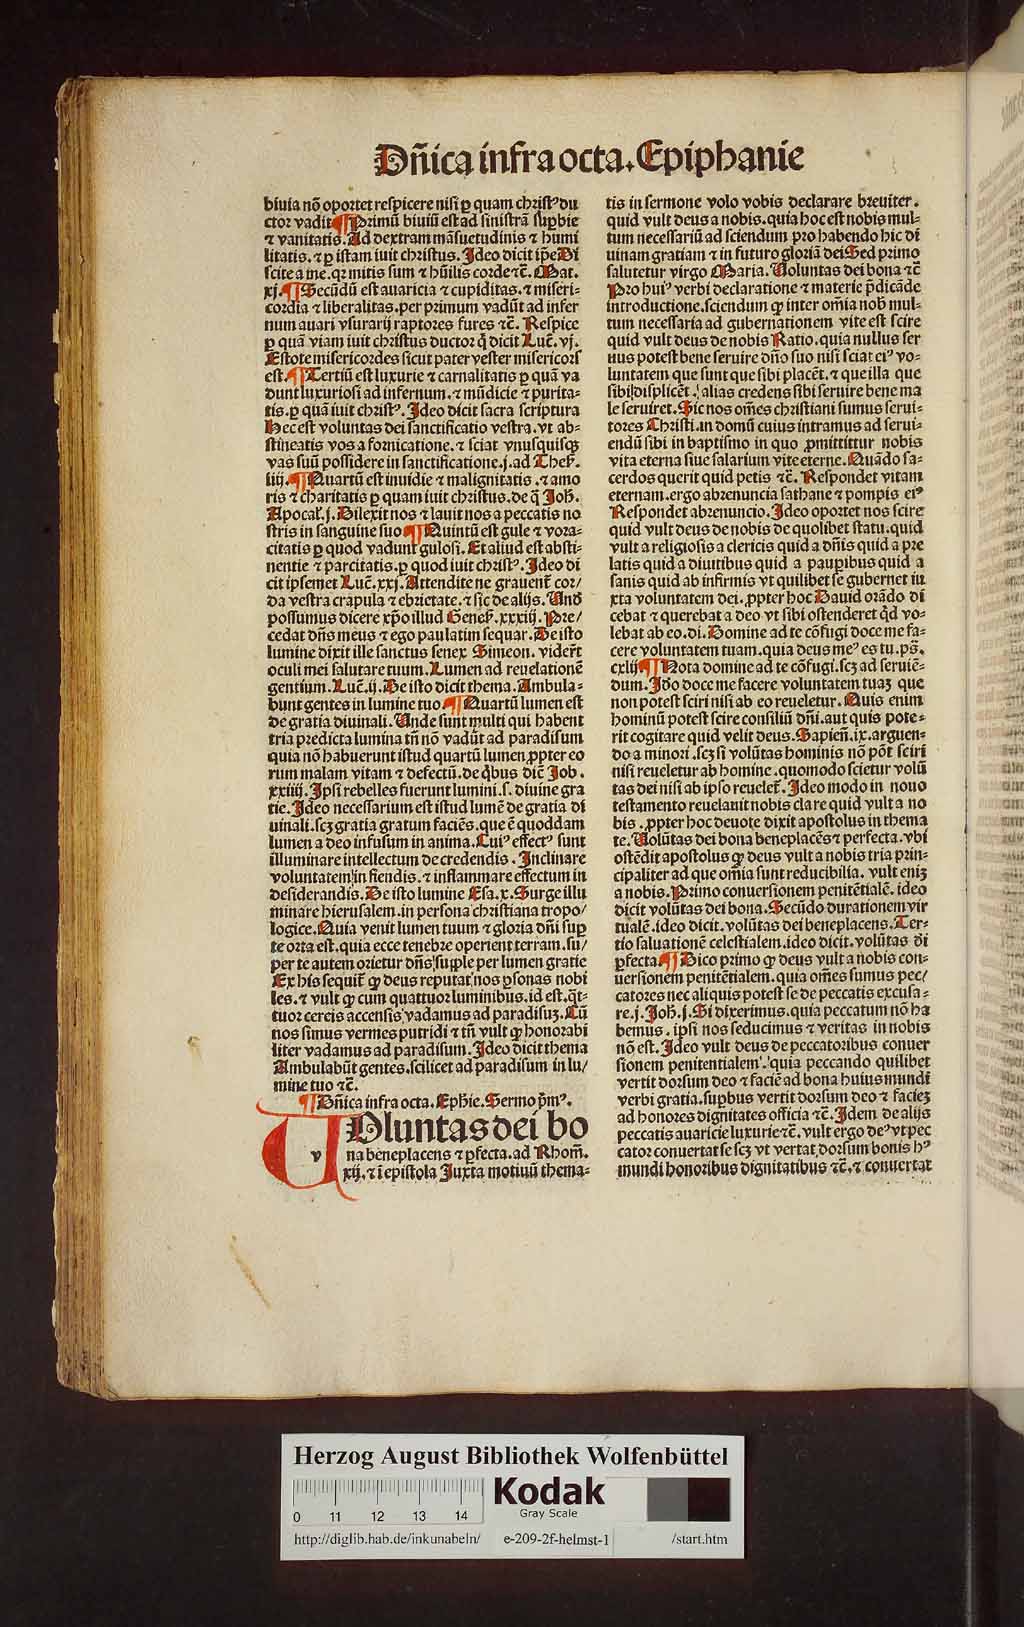 Dñica infra octa. Epiphanie
biuia nõ oportet respicere nisi ꝑ quam christꝰ du
ctor vadit ¶ Primũ biuiũ est ad sinistrã supbie
⁊ vanitatis. Ad dextram mãsuetudinis ⁊ humi
litatis. ⁊ ꝑ istam iuit christus. Ideo dicit ip̃e Di
scite a me. qꝛ mitis sum ⁊ hũilis corde ⁊c̃. Mat.
xj. ¶ Secũdũ est auaricia ⁊ cupiditas. ⁊ miseri-
cordia ⁊ liberalitas. per primum vadũt ad infer
num auari vsurarij raptores fures ⁊c̃. Respice
ꝑ quã viam iuit christus ductor q̃ dicit Luc̃. vj.
Estote misericordes sicut pater vester misericors
est. ¶ Tertiũ est luxurie ⁊ carnalitatis ꝑ quã va
dunt luxuriosi ad infernum. ⁊ mũdicie ⁊ purita-
tis. ꝑ quã iuit christꝰ. Ideo dicit sacra scriptura
Hec est voluntas dei sanctificatio vestra. vt ab-
stineatis vos a fornicatione. ⁊ sciat vnusquisqꝫ
vas suũ possidere in sanctificatione. j. ad Thes̃.
iiij. ¶ Quartũ est inuidie ⁊ malignitatis. ⁊ amo
ris ⁊ charitatis ꝑ quam iuit christus. de q̃ Joh̃.
Apocal̃. j. Dilexit nos ⁊ lauit nos a peccatis no
stris in sanguine suo ¶ Quintũ est gule ⁊ vora-
citatis ꝑ quod vadunt gulosi. Et aliud est absti-
nentie ⁊ parcitatis. ꝑ quod iuit christꝰ. Ideo di
cit ipsemet Luc̃. xxj. Attendite ne grauent̃ cor/
da vestra crapula ⁊ ebrietate. ⁊ sic de alijs. Vnd̃
possumus dicere xp̃o illud Genes̃. xxxiij. Pre/
cedat dñs meus ⁊ ego paulatim sequar. De isto
lumine dixit ille sanctus senex Simeon. viderũt
oculi mei salutare tuum. Lumen ad reuelationẽ
gentium. Luc̃. ij. De isto dicit thema. Ambula-
bunt gentes in lumine tuo ¶ Quartũ lumen est
de gratia diuinali. Unde sunt multi qui habent
tria predicta lumina tñ nõ vadũt ad paradisum
quia nõ habuerunt istud quartũ lumen ꝓpter eo
rum malam vitam ⁊ defectũ. de q̃bus dic̃ Job.
xxiiij. Ipsi rebelles fuerunt lumini. s. diuine gra
tie. Ideo necessarium est istud lumẽ de gratia di
uinali. scꝫ gratia gratum faciẽs. que ẽ quoddam
lumen a deo infusum in anima. Cuiꝰ effectꝰ sunt
illuminare intellectum de credendis. Inclinare
voluntatem in fiendis. ⁊ inflammare effectum in
desiderandis. De isto lumine Esa. x. Surge illu
minare hierusalem. in persona christiana tropo/
logice. Quia venit lumen tuum ⁊ gloria dñi sup
te orta est. quia ecce tenebre operient terram. su/
per te autem orietur dñs supple per lumen gratie
Ex his sequit̃ ꝙ deus reputat nos ꝑsonas nobi
les. ⁊ vult ꝙ cum quattuor luminibus. id est. q̃t-
tuor cereis accensis vadamus ad paradisuꝫ. Cũ
nos simus vermes putridi ⁊ tñ vult ꝙ honorabi
liter vadamus ad paradisum. Ideo dicit thema
Ambulabũt gentes. scilicet ad paradisum in lu/
mine tuo ⁊c̃.
¶ Dñica infra octa. Ephie. Sermo p̃mꝰ.
vOluntas dei bo
na beneplacens ⁊ ꝑfecta. ad Rhom̃.
xij. ⁊ i epistola Juxta motiuũ thema-
tis in sermone volo vobis declarare breuiter.
quid vult deus a nobis. quia hoc est nobis mul-
tum necessariũ ad sciendum pro habendo hic di
uinam gratiam ⁊ in futuro gloriã dei Sed primo
salutetur virgo Maria. Voluntas dei bona ⁊c̃
Pro huiꝰ verbi declaratione ⁊ materie p̃dicãde
introductione. sciendum ꝙ inter om̃ia nob̃ mul-
tum necessaria ad gubernationem vite est scire
quid vult deus de nobis Ratio. quia nullus ser
uus potest bene seruire dño suo nisi sciat eiꝰ vo-
luntatem que sunt que sibi placẽt. ⁊ que illa que
sibi displicẽt. alias credens sibi seruire bene ma
le seruiret. Sic nos om̃es christiani sumus serui-
tores Christi. in domũ cuius intramus ad serui-
endũ sibi in baptismo in quo ꝓmittitur nobis
vita eterna siue salarium vite eterne. Quãdo sa-
cerdos querit quid petis ⁊c̃. Respondet vitam
eternam. ergo abrenuncia sathane ⁊ pompis eiꝰ
Respondet abrenuncio. Ideo oportet nos scire
quid vult deus de nobis de quolibet statu. quid
vult a religiosis a clericis quid a dñis quid a pre
latis quid a diuitibus quid a pauꝑibus quid a
sanis quid ab infirmis vt quilibet se gubernet iu
xta voluntatem dei. ꝓpter hoc Dauid orãdo di
cebat ⁊ querebat a deo vt sibi ostenderet qd̃ vo-
lebat ab eo. di. Domine ad te cõfugi doce me fa-
cere voluntatem tuam. quia deus meꝰ es tu. ps̃.
cxlij ¶ Nota domine ad te cõfugi. scꝫ ad seruiẽ-
dum. Jdõ doce me facere voluntatem tuaꝫ que
non potest sciri nisi ab eo reueletur. Quis enim
hominũ potest scire consiliũ dñi. aut quis pote-
rit cogitare quid velit deus. Sapieñ. ix. arguen-
do a minori. scꝫ si volũtas hominis nõ põt sciri
nisi reueletur ab homine. quomodo scietur volũ
tas dei nisi ab ipso reuelet̃. Ideo modo in nouo
testamento reuelauit nobis clare quid vult a no
bis. ꝓpter hoc deuote dixit apostolus in thema
te. Volũtas dei bona beneplacẽs ⁊ perfecta. vbi
ostẽdit apostolus ꝙ deus vult a nobis tria prin-
cipaliter ad que om̃ia sunt reducibilia. vult eniꝫ
a nobis. Primo conuersionem penitẽtialẽ. ideo
dicit volũtas dei bona. Secũdo durationem vir
tualẽ. ideo dicit. volũtas dei beneplacens. Ter-
tio saluationẽ celestialem. ideo dicit. volũtas di
ꝑfecta. ¶ Dico primo ꝙ deus vult a nobis con-
uersionem penitẽtialem. quia om̃es sumus pec/
catores nec aliquis potest se de peccatis excusa-
re. j. Joh̃. j. Si dixerimus. quia peccatum nõ ha
bemus. ipsi nos seducimus ⁊ veritas in nobis
nõ est. Ideo vult deus de peccatoribus conuer
sionem penitentialem. quia peccando quilibet
vertit dorsum deo ⁊ faciẽ ad bona huius mundi
verbi gratia. supbus vertit dorsum deo ⁊ facieꝫ
ad honores dignitates officia ⁊c̃. Idem de alijs
peccatis auaricie luxurie ⁊c̃. vult ergo deꝰ vt pec
cator conuertat se scꝫ vt vertat dorsum bonis hꝰ
mundi honoribus dignitatibus ⁊c̃. ⁊ conuertat
Herzog August Bibliothek Wolfenbüttel
Kodak
Gray Scale
0 11 12 13 14
http://diglib.hab.de/inkunabeln/ e-209-2f-helmst-1 /start.htm